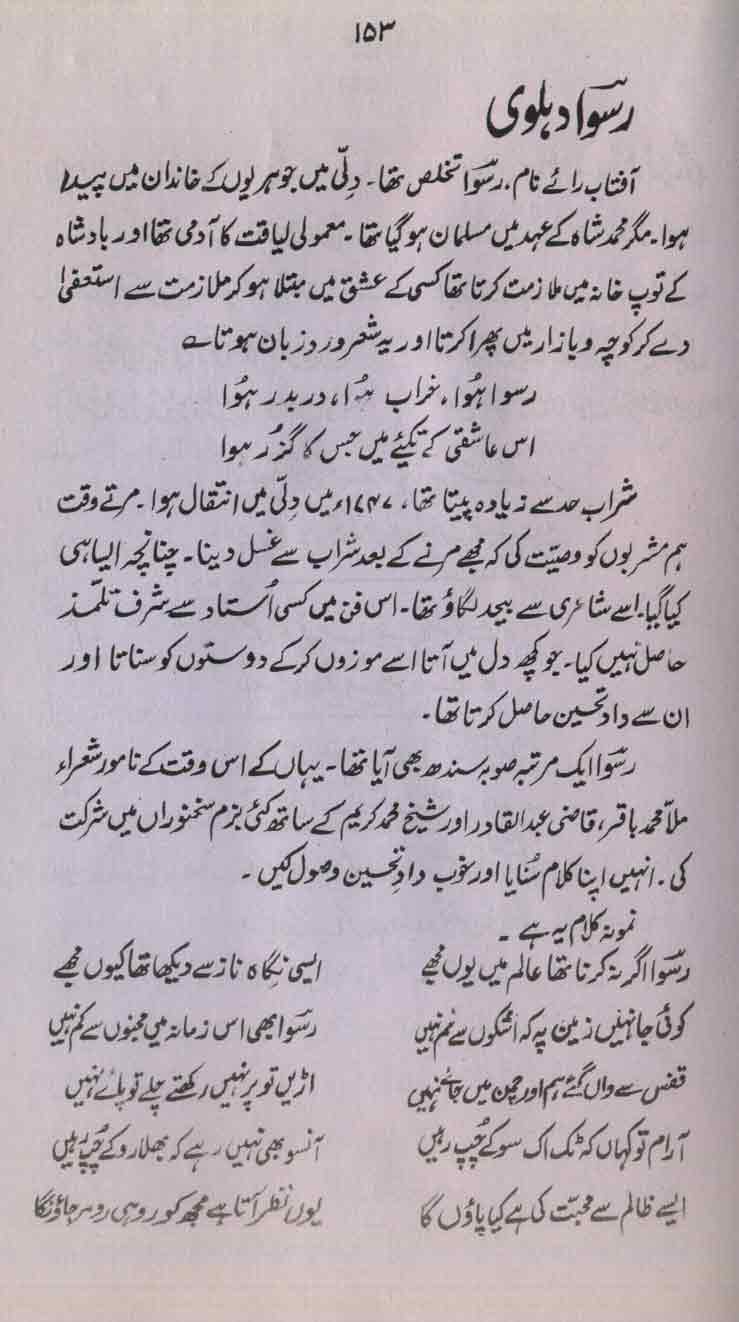 ۱۵۳
رسوا دہلوی
آفتاب رائے نام، رسوا تخلص تھا۔ دلّی میں جوہریوں کے خاندان میں پیدا
ہوا۔ مگر محمد شاہ کے عہد میں مسلمان ہو گیا تھا۔ معمولی لیاقت کا آدمی تھا اور بادشاہ
کے توپ خانہ میں ملازمت کرتا تھا کسی کے عشق میں مبتلا ہو کر ملازمت سے استعفیٰ
دے کر کوچہ و بازار میں پھرا کرتا اور یہ شعر ورد زبان ہوتا ؎
رسوا ہُوا، خراب ہُوا، در بدر ہُوا
اس عاشقی کے تکیئے میں جس کا گذُر ہوا
شراب حد سے زیادہ پیتا تھا، ۱۷۴۷ء میں دِلّی میں انتقال ہوا۔ مرتے وقت
ہم مشربوں کو وصیّت کی کہ مجھے مرنے کے بعد شراب سے غسل دینا۔ چنانچہ ایسا ہی
کیا گیا۔ اسے شاعری سے بیحد لگاؤ تھا۔ اس فن میں کسی اُستاد سے شرف تلمّذ
حاصل نہیں کیا۔ جو کچھ دل میں آتا اسے موزوں کر کے دوستوں کو سناتا اور
ان سے داد تحسین حاصل کرتا تھا۔
رسوا ایک مرتبہ صوبہ سندھ بھی آیا تھا۔ یہاں کے اس وقت کے نامور شعراء
ملّا محمد باقر، قاضی عبدالقادر اور شیخ محمد کریم کے ساتھ کئی بزم سخنوراں میں شرکت
کی۔ انہیں اپنا کلام سُنایا اور خوب دادِ تحسین وصول کیں۔
نمونہ کلام یہ ہے ۔
رسوا اگر نہ کرنا تھا عالم میں یوں مجھے ایسی نگاہ ناز سے دیکھا تھا کیوں مجھے
کوئی جا نہیں زمین پہ کہ اشکوں سے نم نہیں رسوا بھی اس زمانہ میں مجنوں سے کم نہیں
قفس سے واں گئے ہم اور چمن میں جائے نہیں اڑیں تو پر نہیں رکھتے چلے تو پائے نہیں
آرام تو کہاں کہ ٹک اک سو کے چُپ رہیں آنسو بھی نہیں رہے کہ بھلا رو کے چُپ رہیں
ایسے ظالم سے محبّت کی ہے کیا پاؤں گا یوں نظر آتا ہے مجھ کو رو ہی رو مر جاؤنگا